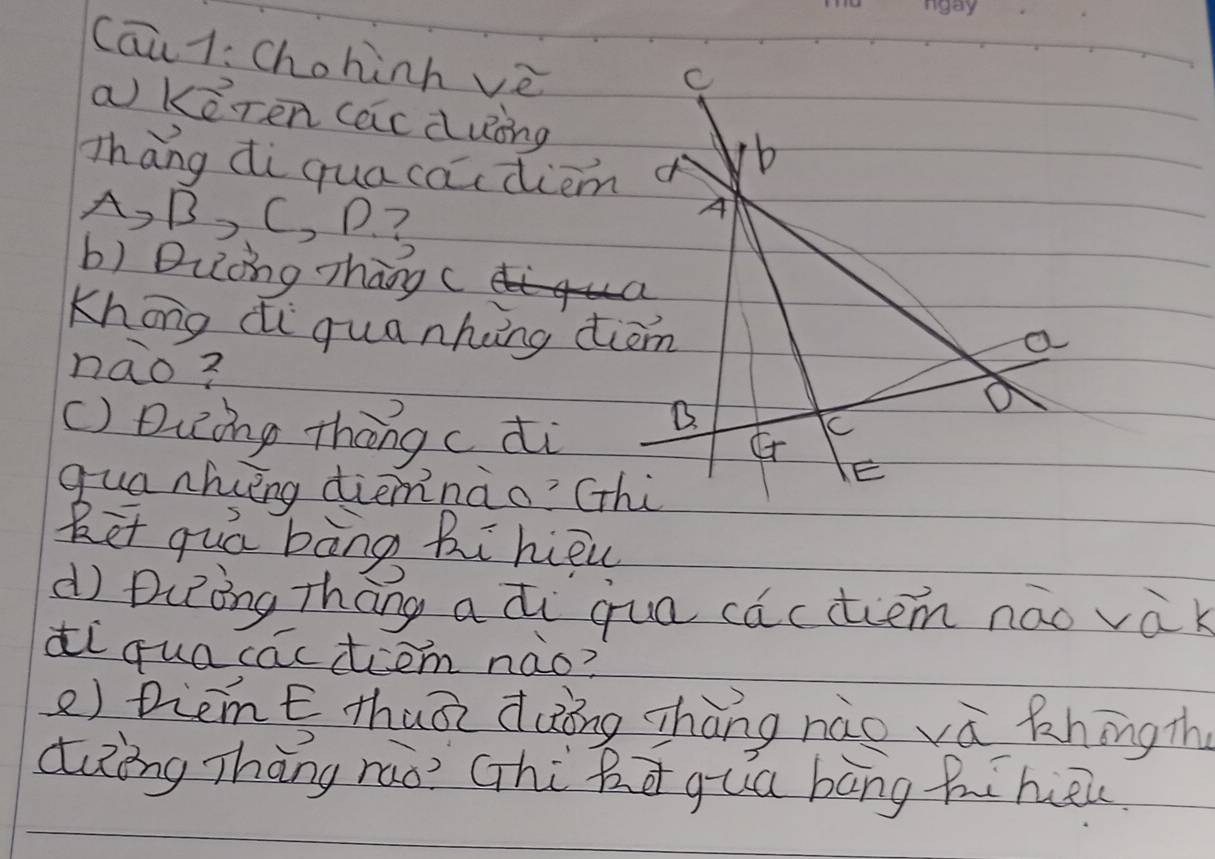 ngày
Câu 1: Cho hình vẽ
a) Kể tên các đường
thẳng đi qua các điểm
A, B, C, D.?
b) Đường thẳng c đi qua
Không đi qua những điểm
nào?
c) Đường thẳng c đi
qua những điểm nào? Ghi
kết quả bằng kí hiệu
d) Đường thẳng a đi qua các điểm nào và k
đi qua các điểm nào?
e) Điểm E thuộc đường thẳng nào và không th
đường thẳng nào? Ghi kết quả bằng kí hiệu.
C
b
d
A
a
D
B
C
G
E